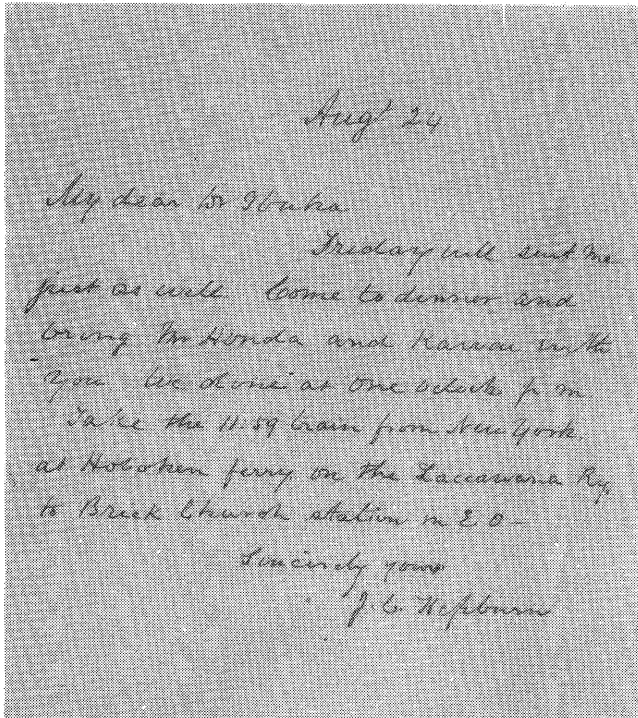 Augt 24
My dear Dr Ibuka
Friday will suit me
just as well Come to dinner and
bring Mr Honda and Kawai with
you We dine at one oclock p m.
Take the 11:59 train from New York.
at Hoboken ferry on the Laccawana Ry.
to Brick Church station in E O -
Sincerely yours
J. C. Hepburn